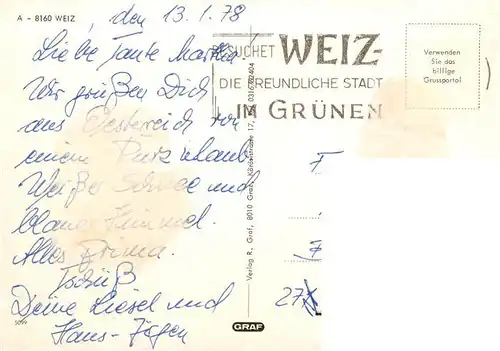 A - 8160 WEIZ
, den 13.1.78
Liebe Tante Martha!
Wir grüßen Dich
aus Oesterreich von
einem Kurzurlaub.
Weißer Schnee und
blauer Himmel.
Alles prima.
Tschüß
Deine Liesel und
Hans-Jürgen
5099
BESUCHET WEIZ-
DIE FREUNDLICHE STADT
IM GRÜNEN
Verwenden
Sie das
billige
Grussportal
Verlag R. Graf, 8010 Graz
F
7
27
GRAF